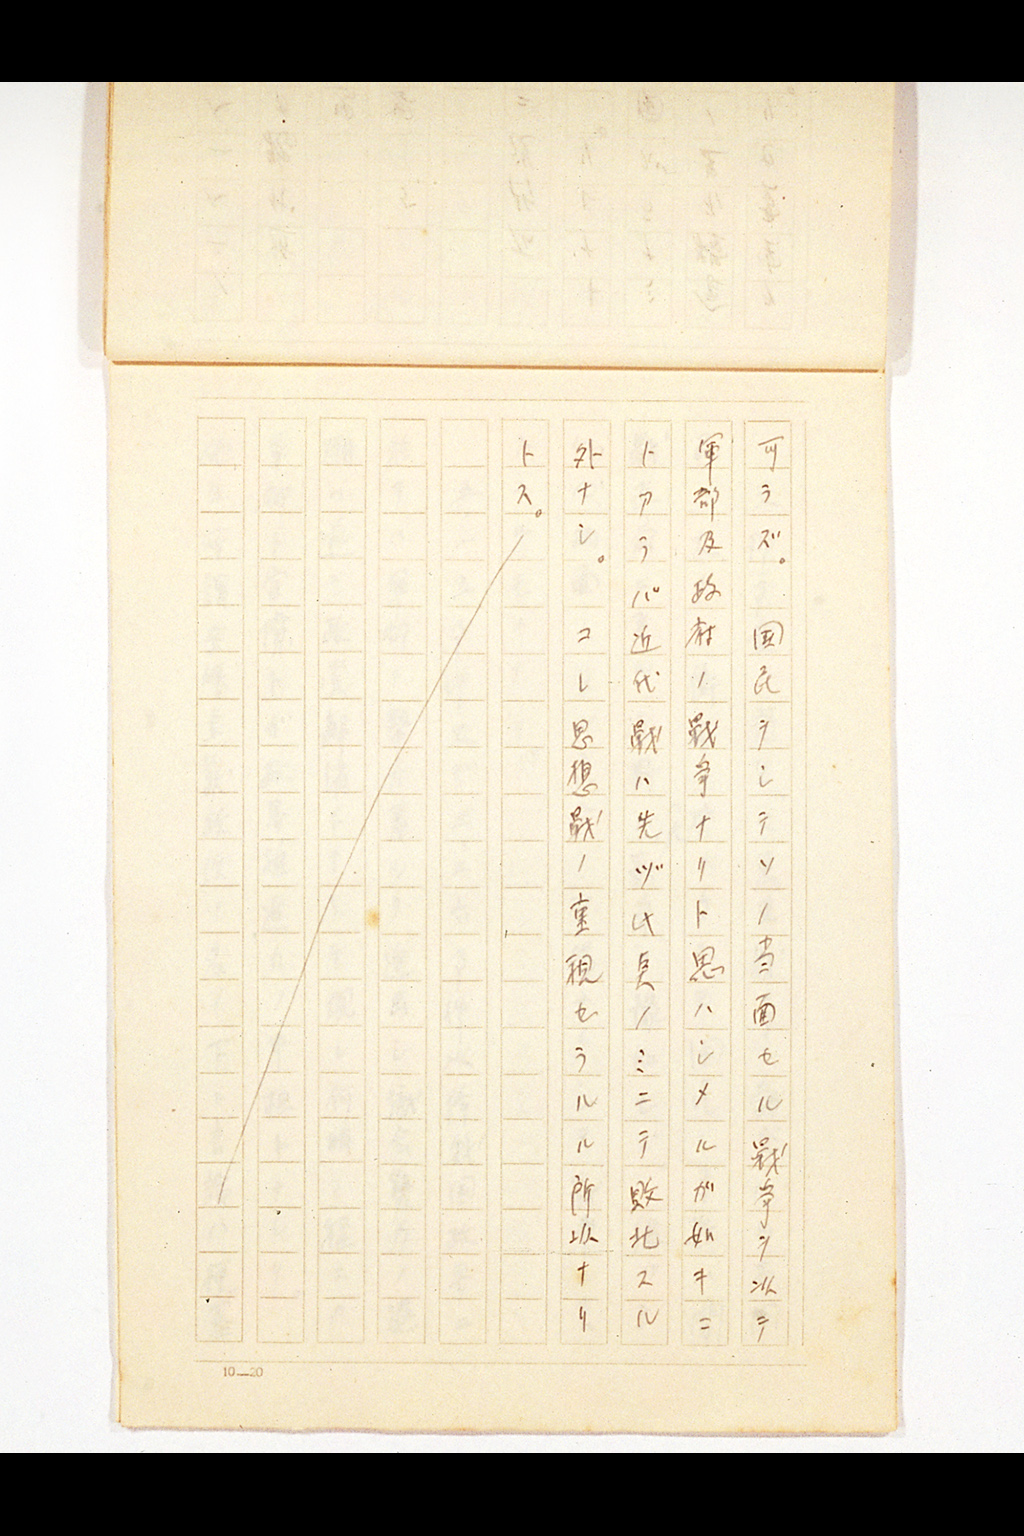 可ラズ。国民ヲシテソノ当面セル戦争ヲ以テ
軍部及政府ノ戦争ナリト思ハシメルガ如キコ
トアラバ近代戦ハ先ヅ此点ノミニテ敗北スル
外ナシ。コレ思想戦ノ重視セラルル所以ナリ
トス。
10—20